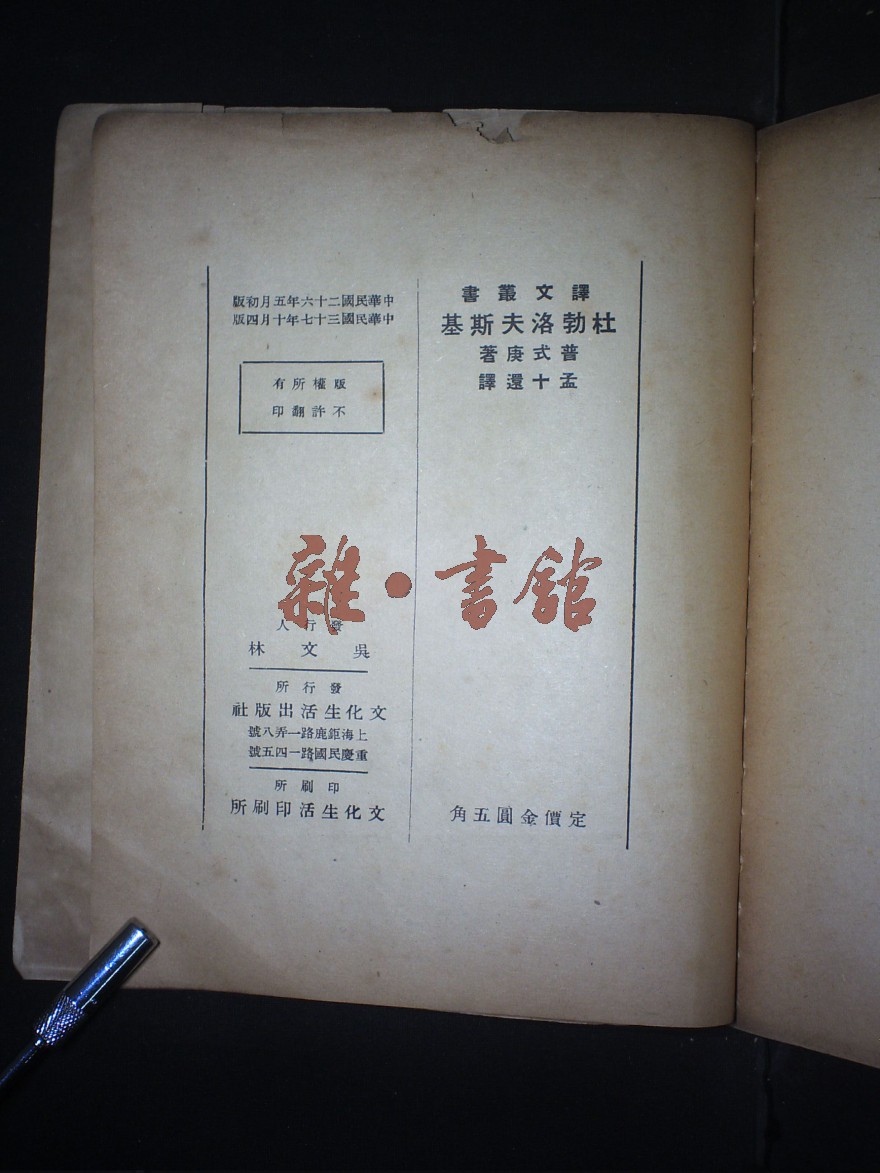 譯文叢書
杜勃洛夫斯基
普式庚著
孟十還譯
定價金圓五角
中華民國二十六年五月初版
中華民國三十七年十月四版
版權所有
不許翻印
發行人
吳文林
發行所
文化生活出版社
上海鉅鹿路一弄八號
重慶民國路一四五號
印刷所
文化生活印刷所
雜·書館